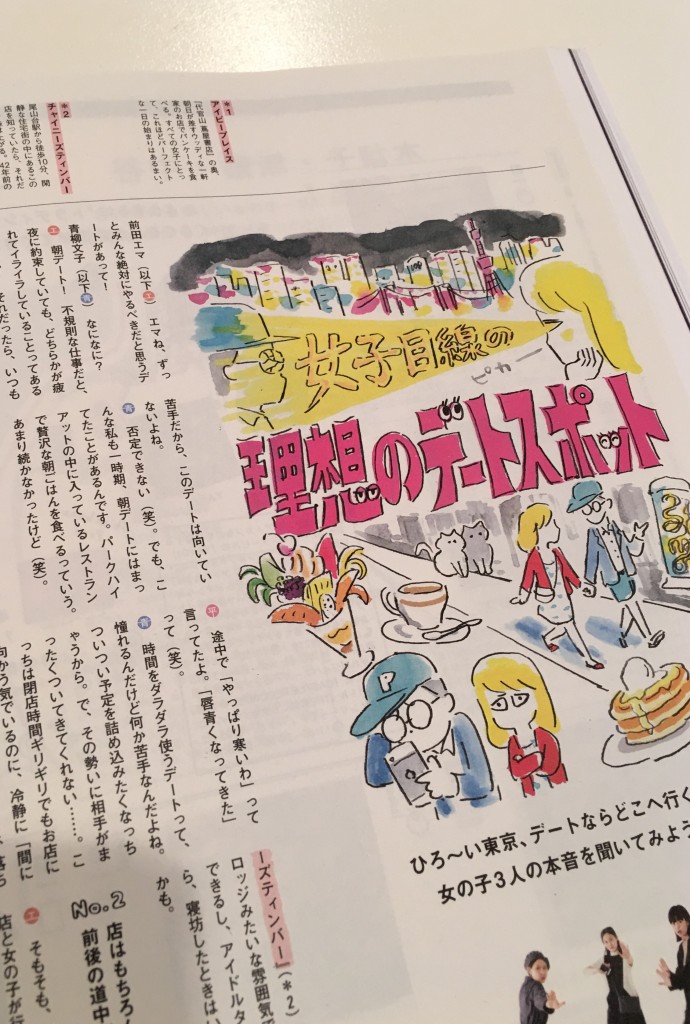 女子目線の
理想のデートスポット
ひろ〜い東京、デートならどこへ行く
女の子3人の本音を聞いてみよう
P
*1
アイビープレイス
「代官山 蔦屋書店」の奥、
朝日が差すウッディな一軒
家のお店でパンケーキを食
べる。すべての女子にとっ
て、これほどパーフェクト
な一日の始まりはあるまい。
*2
チャイニーズティンバー
尾山台駅から徒歩10分、閑
静な住宅街の中にあるこの
店を知っていたら、それだ
前田エマ（以下エ） エマね、ずっ
とみんな絶対にやるべきだと思うデ
ートがあって！
青柳文子（以下青） なになに？
エ 朝デート！ 不規則な仕事だと、
夜に約束していても、どちらかが疲
れてイライラしていることってある
それだったら、いつも
苦手だから、このデートは向いてい
ないよね。
青 否定できない（笑）。でも、こ
んな私も一時期、朝デートにはまっ
てたことがあるんです。パークハイ
アットの中に入っているレストラン
で贅沢な朝ごはんを食べるっていう。
あまり続かなかったけど（笑）。
平 途中で「やっぱり寒いわ」って
言ってたよ。「唇青くなってきた」
って（笑）。
青 時間をダラダラ使うデートって、
憧れるんだけど何か苦手なんだよね。
ついつい予定を詰め込みたくなっち
ゃうから。で、その勢いに相手がま
ったくついてきてくれない……。こ
っちは閉店時間ギリギリでもお店に
向かう気でいるのに、冷静に「間に
ーズティンバー」（*2）
ロッジみたいな雰囲気で
できるし、アイドルタ
ら、寝坊したときはい
かも。
No.2
店はもちろん
前後の道中
エ そもそも、
店と女の子が行